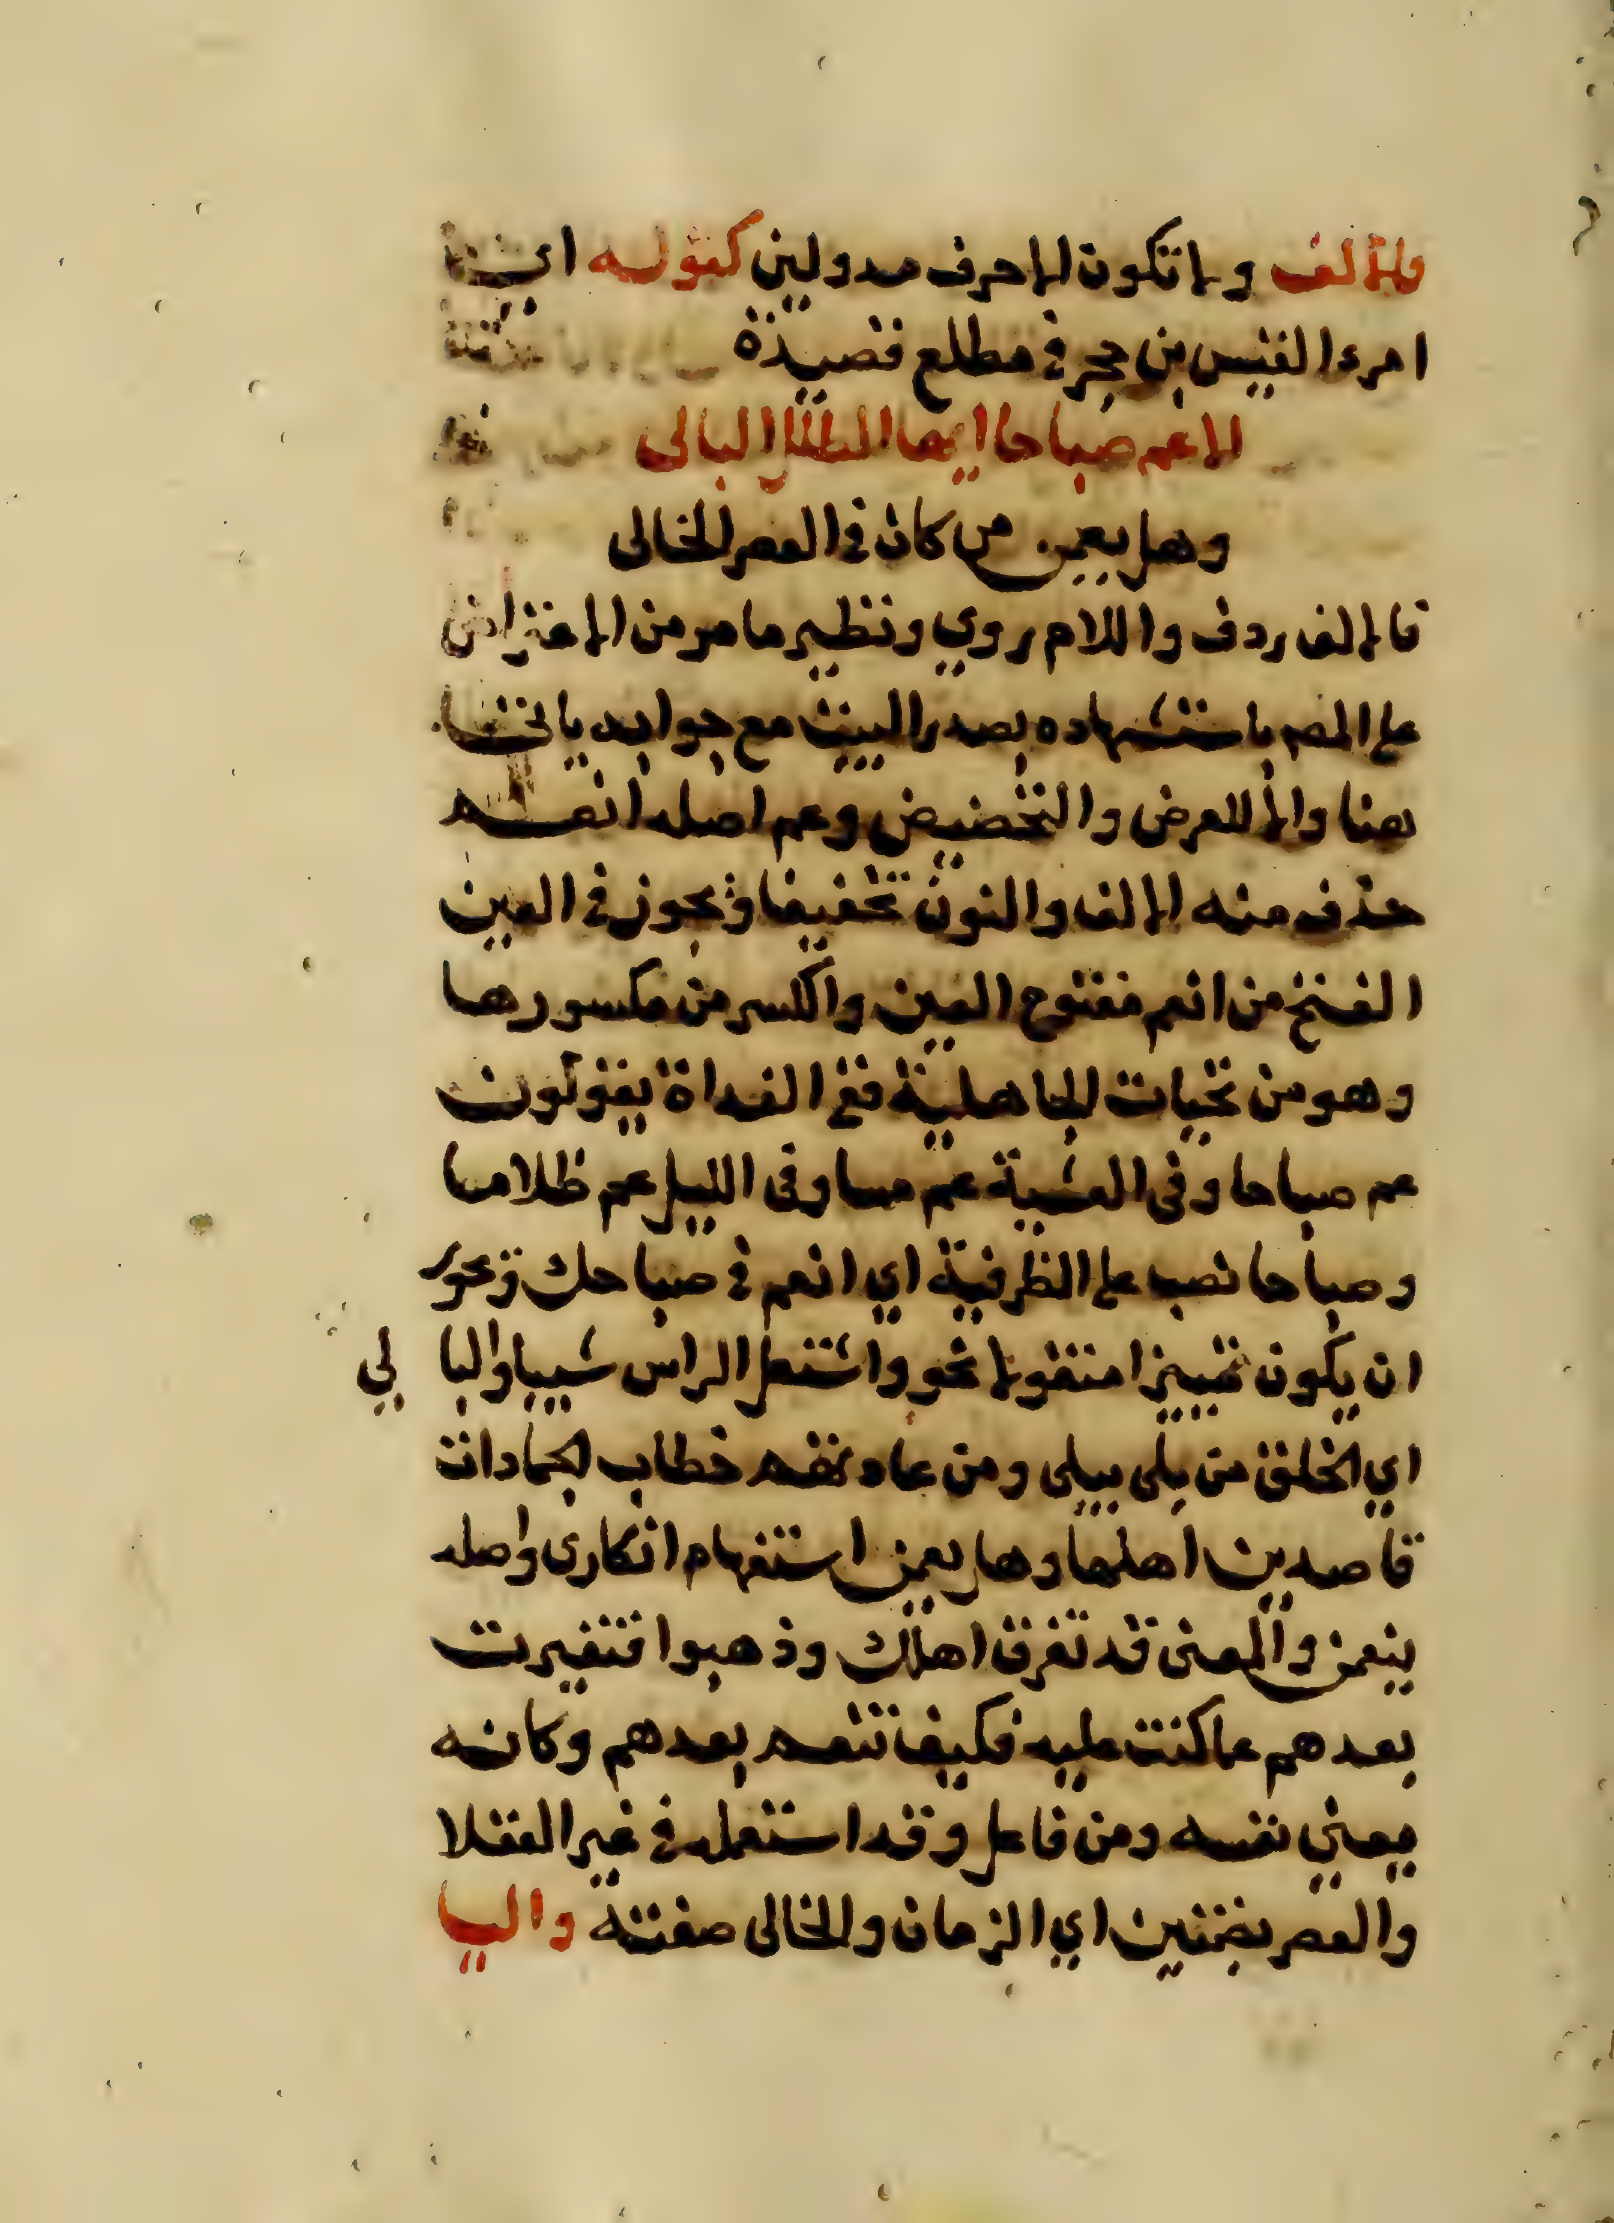 فالالف ولا تكون الا حرف مد ولين كقوله اي
امرء القيس بن حجر في مطلع قصيدة
الا عم صباحا ايها الطلل البالى
وهل يعمن من كان فى العصر الخالى
فالالف ردف واللام روي ونظير ما مر من الاعتراض
على المصم باستشهاده بصدر البيت مع جوابه ياتى
هنا والا للعرض والتخضيض وعم اصله انعم
حذف منه الالف والنون تخفيفا ويجوز في العين
الفتح من انعم مفتوح العين والكسر من مكسورها
وهو من تحيات الجاهلية ففي الغداة يقولون
عم صباحا وفى العشية عم مسا وفى الليل عم ظلاما
وصباحا نصب على الظرفية اي انعم في صباحك ويجوز
ان يكون تمييزا منقولا نحو واشتعل الراس شيبا والبا لي
اي الخلق من بلى يبلى ومن عادتهم خطاب الجمادات
قاصدين اهلها وهل يعمن استفهام انكارى واصله
ينعمن والمعنى قد تفرق اهلك وذهبوا فتغيرت
بعدهم عما كنت عليه فكيف تنعم بعدهم وكانه
يعني نفسه ومن فاعل وقد استعمله في غير العقلا
والعصر بضمتين اي الزمان والخالى صفته واليا